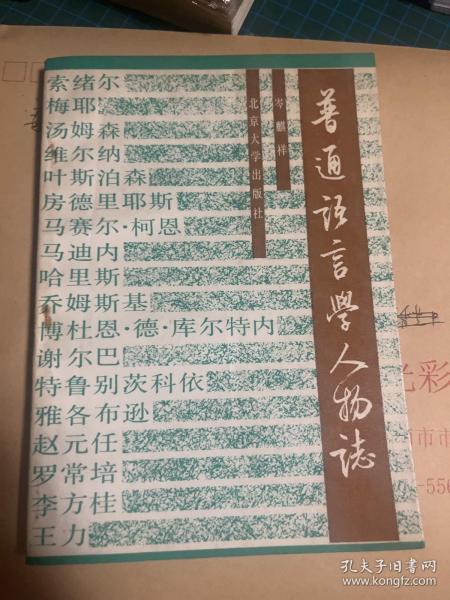 普通語言學人物誌
岑麒祥
北京大学出版社
索绪尔
梅耶
汤姆森
维尔纳
叶斯泊森
房德里耶斯
马赛尔·柯恩
马迪内
哈里斯
乔姆斯基
博杜恩·德·库尔特内
谢尔巴
特鲁别茨科依
雅各布逊
赵元任
罗常培
李方桂
王力
光彩
市市
-556
孔夫子旧书网
www.kongfz.com